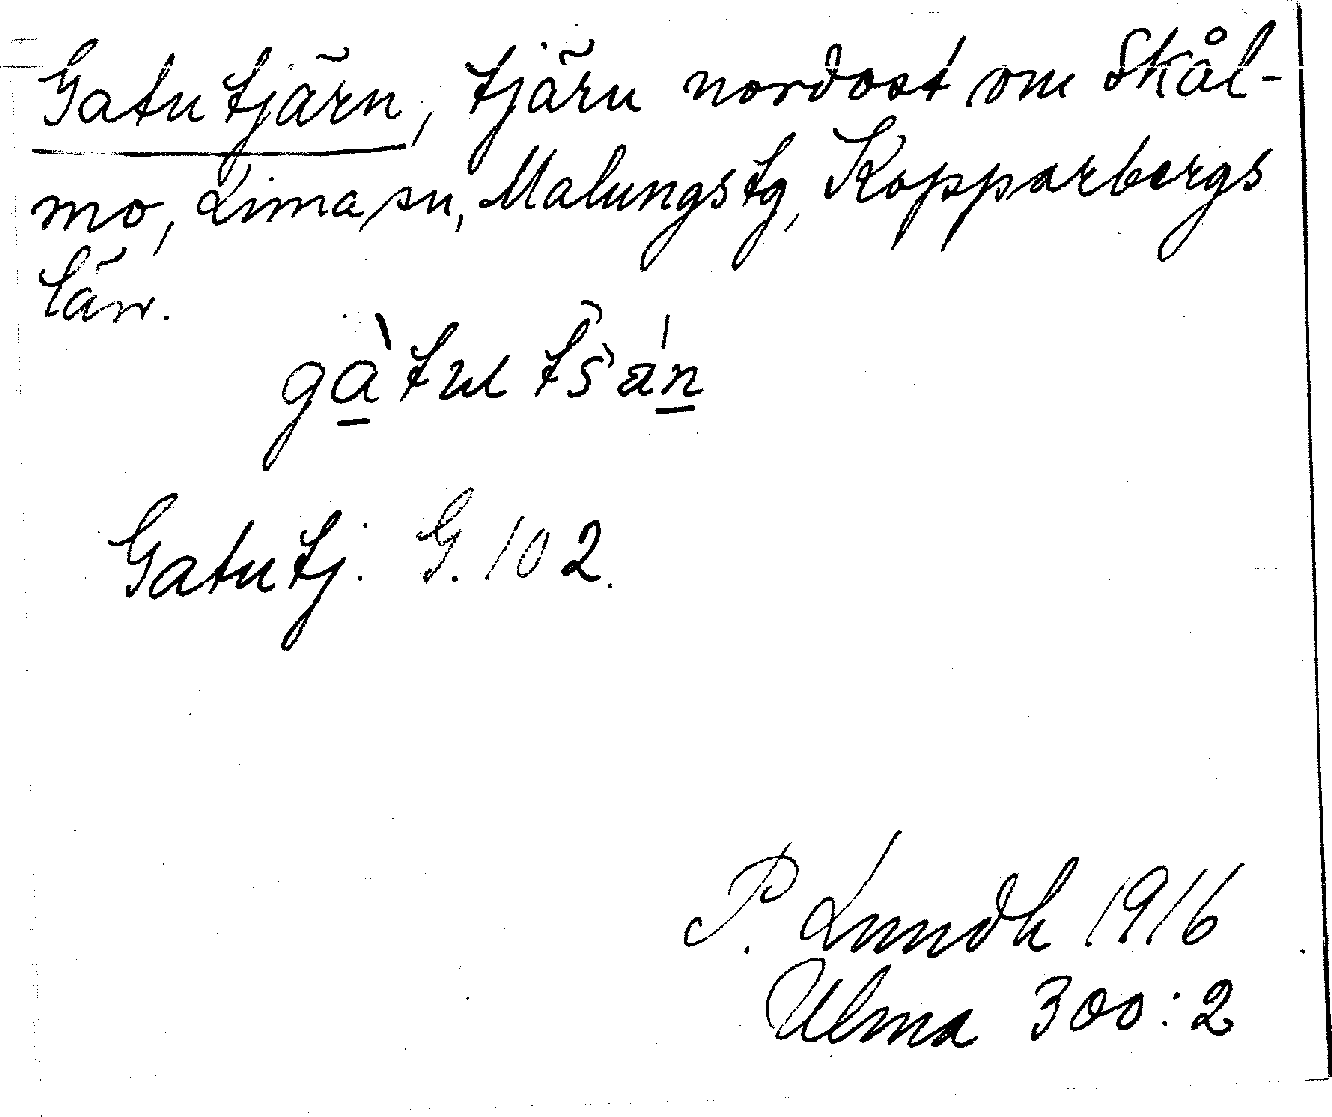 Gatutjärn, tjärn nordost om Skål-
mo, Lima sn, Malungs tg, Kopparbergs
län.
gàtut tšán
Gatutj. G. 102.
P. Lundh 1916
Ulma 300:2